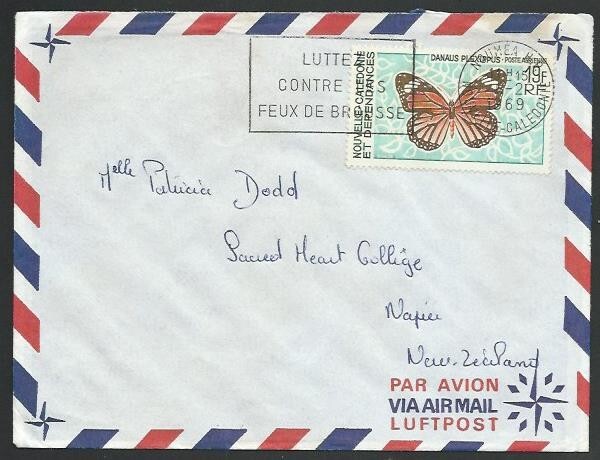 LUTTE
CONTRE
FEUX DE BR SSE
NOUVELLE CALEDONIE
ET DEPENDANCES
DANAUS PLEXIPPUS · POSTE AERIENNE
19F
RF
NOUMEA
69
CALEDONIE
Melle Patricia Dodd
Sacred Heart Collège
Napier
New-Zéland
PAR AVION
VIA AIR MAIL
LUFTPOST